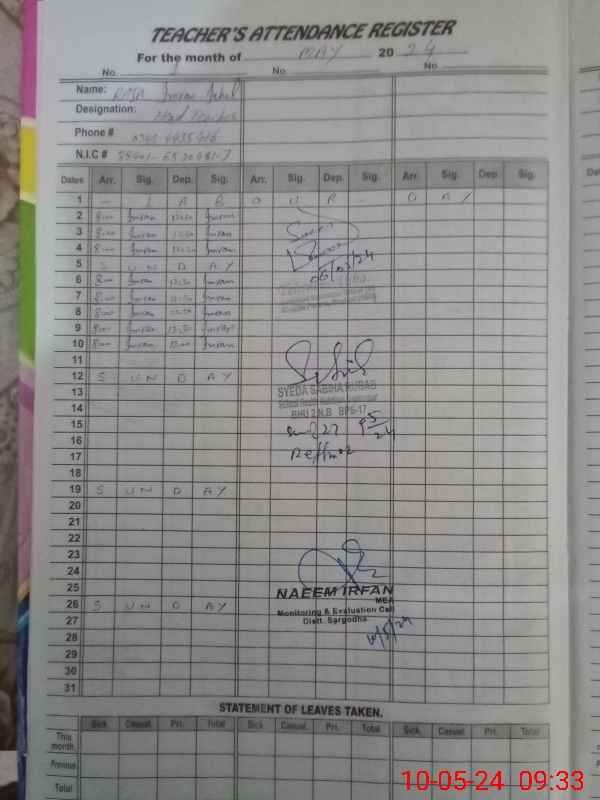 TEACHER'S ATTENDANCE REGISTER
For the month of MAY 20 24
No 1 No No
Name: RAJA Imran Iqbal
Designation: Head Teacher
Phone #
N.I.C #
Dates Arr. Sig. Dep. Sig. Arr. Sig. Dep. Sig. Arr. Sig. Dep. Sig.
1 - L A B O U R - D A Y
2 8:00 Imran 12:30 Imran
3 8:00 Imran 12:30 Imran
4 8:00 Imran 12:30 Imran
5 S UN D AY
6 8:00 Imran 12:30 Imran
7 8:00 Imran 12:30 Imran
8 8:00 Imran 12:30 Imran
9 8:00 Imran 12:30 Imran
10 8:00 Imran 12:00 Imran
11
12 S UN D AY
13
14
15
16
17
18
19 S UN D AY
20
21
22
23
24
25
26 S UN D AY
27
28
29
30
31
SYEDA SABIHA RUBAB
BHU 2 N.B BPS-17
NAEEM IRFAN
MEA
Monitoring & Evaluation Cell
Distt. Sargodha
STATEMENT OF LEAVES TAKEN.
Sick Casual. Pri. Total Sick Casual. Pri. Total Sick Casual. Pri. Total
This month.
Previous
Total
10-05-24 09:33